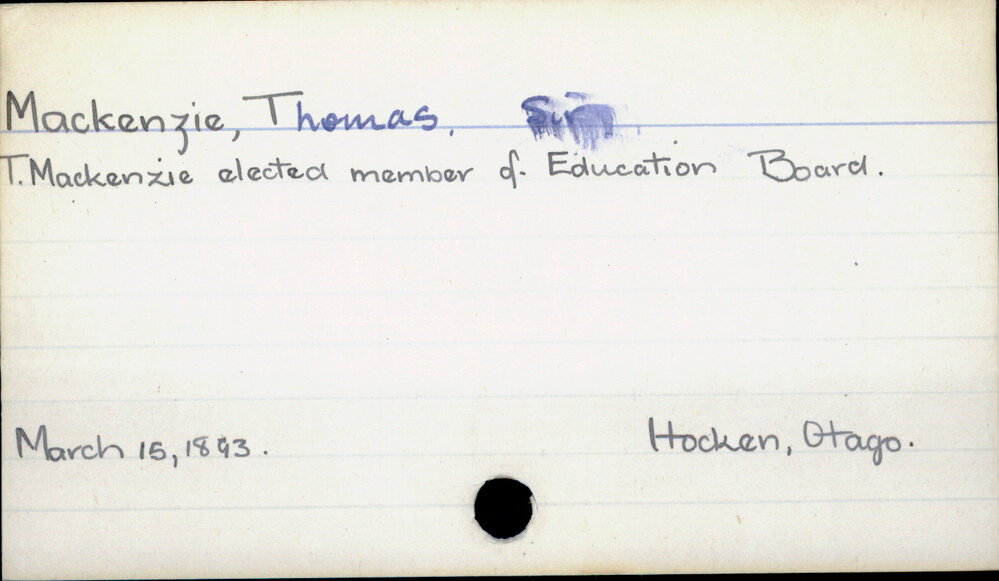 Mackenzie, Thomas. Sir
T. Mackenzie elected member of Education Board.
March 15, 1893.
Hocken, Otago.